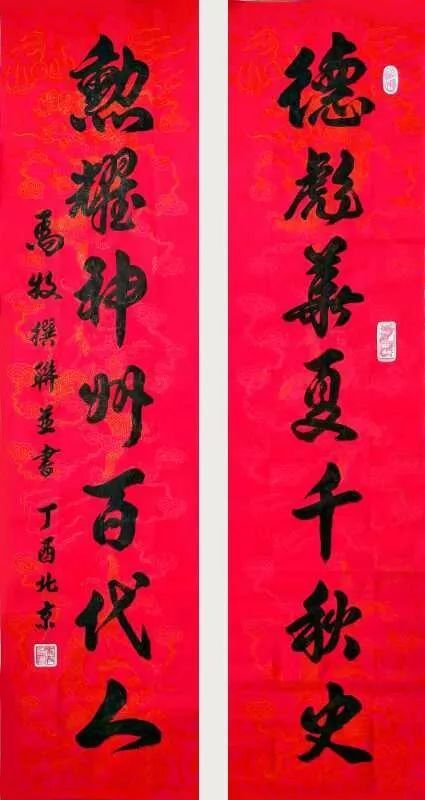 德彪華夏千秋史
勳耀神州百代人
馬牧撰聯並書 丁酉北京